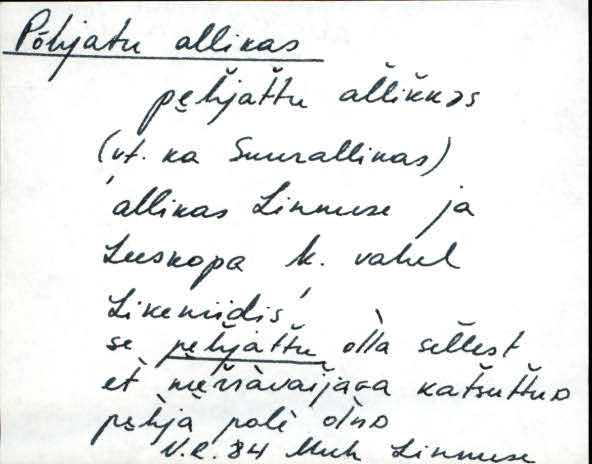 Põhjatu allikas
pe̮hjat̆tu al̆lik̆kəs
(vt. ka Suurallikas)
'allikas Linnuse ja
Leeskopa k. vahel
Likeniidis'
se pe̮hjat̆tu òlla sel̆lest
et mèrràvaijaGa kat̆sut̆tuD
pe̮hjà polè òlnD
V.R. 84 Muh Linnuse